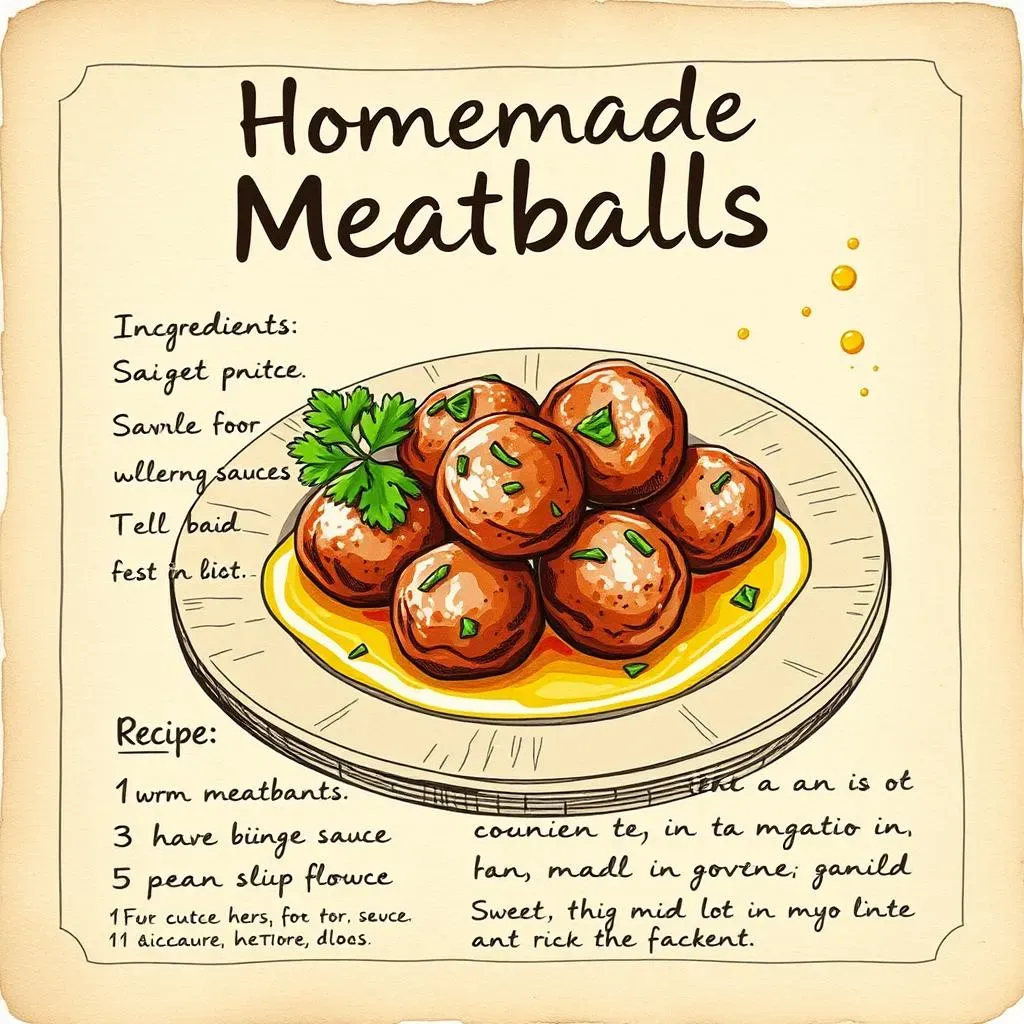 Homemade
Meatballs
Incgredients:
Saiget pnitce.
Savrle foor
wllerng sauces
Tell baid
fest in lict..
Recipe:
1 wrm meatbants.
3 have biinge sauce
5 pean sliip flowce
1 Fur cutce hers, fot tor, seuce.
11 aiccaure, heTTore, dloos.
a an is ot
counien te, in ta mgatio in,
tan, madl in govene; ganild
Sweet, thig mid lot in myo linte
ant rick the fackent.